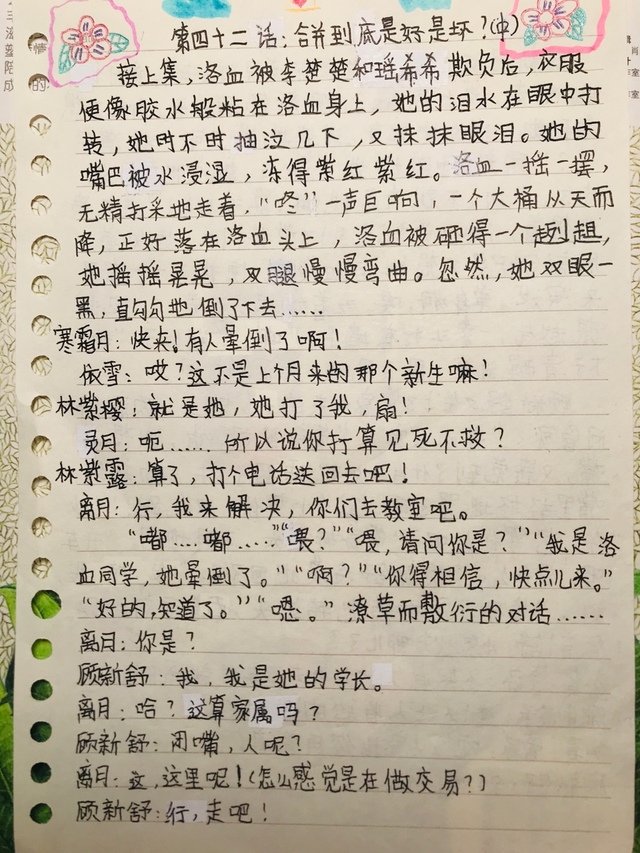 第四十二话：合并到底是好是坏？(中)
接上集，洛血被李楚楚和瑶希希欺负后，衣服
便像胶水般粘在洛血身上，她的泪水在眼中打
转，她时不时抽泣几下，又抹抹眼泪。她的
嘴巴被水浸湿，冻得紫红紫红。洛血一摇一摆，
无精打采地走着，“咚”一声巨响，一个大桶从天而
降，正好落在洛血头上，洛血被砸得一个趔趄，
她摇摇晃晃，双腿慢慢弯曲。忽然，她双眼一
黑，直勾勾地倒了下去……
寒霜月：快来！有人晕倒了啊！
依雪：哎？这不是上个月来的那个新生嘛！
林紫樱：就是她，她打了我，扇！
灵月：呃……所以说你打算见死不救？
林紫露：算了，打个电话送回去吧！
离月：行，我来解决，你们去教室吧。
“嘟……嘟……”“喂？”“喂，请问你是？”“我是洛
血同学，她晕倒了。”“啊？”“你得相信，快点儿来。”
“好的，知道了。”“嗯。”潦草而敷衍的对话……
离月：你是？
顾新舒：我，我是她的学长。
离月：哈？这算家属吗？
顾新舒：闭嘴，人呢？
离月：这，这里呢！(怎么感觉是在做交易？)
顾新舒：行，走吧！